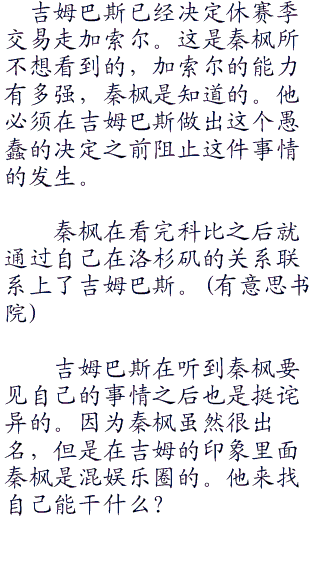 吉姆巴斯已经决定休赛季
交易走加索尔。这是秦枫所
不想看到的，加索尔的能力
有多强，秦枫是知道的。他
必须在吉姆巴斯做出这个愚
蠢的决定之前阻止这件事情
的发生。
秦枫在看完科比之后就
通过自己在洛杉矶的关系联
系上了吉姆巴斯。(有意思书
院)
吉姆巴斯在听到秦枫要
见自己的事情之后也是挺诧
异的。因为秦枫虽然很出
名，但是在吉姆的印象里面
秦枫是混娱乐圈的。他来找
自己能干什么？